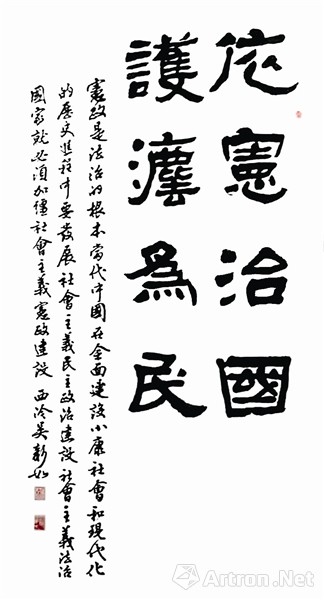 依憲治國
護灋為民
憲政是法治的根本當代中國在全面建設小康社會和現代化
的歷史進程中要發展社會主義民主政治建設社會主義法治
國家就必須加強社會主義憲政建設 西泠吴新如
Artron.Net